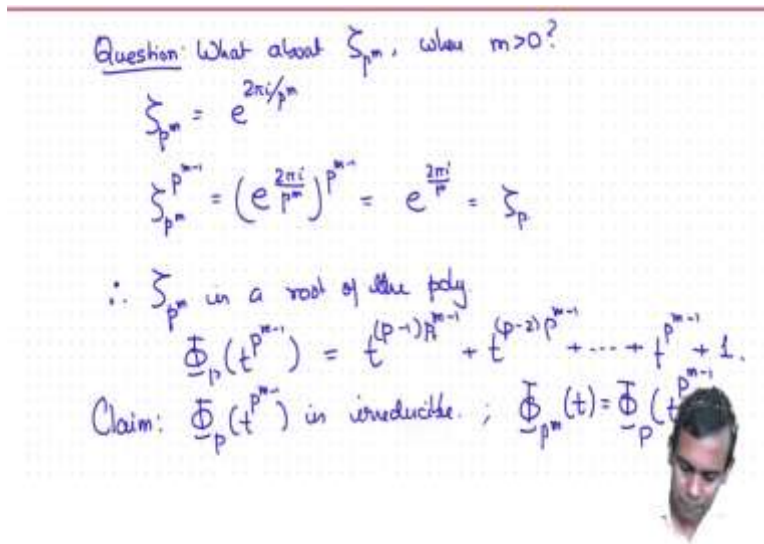 Question: What about ζ_{p^m}, when m>0?
ζ_{p^m} = e^{2πi/p^m}
ζ_{p^m}^{p^{m-1}} = (e^{\frac{2πi}{p^m}})^{p^{m-1}} = e^{\frac{2πi}{p}} = ζ_p
∴ ζ_{p^m} is a root of the poly
Φ_p(t^{p^{m-1}}) = t^{(p-1)p^{m-1}} + t^{(p-2)p^{m-1}} + ··· + t^{p^{m-1}} + 1.
Claim: Φ_p(t^{p^{m-1}}) is irreducible. ; Φ_{p^m}(t) = Φ_p(t^{p^{m-1}}